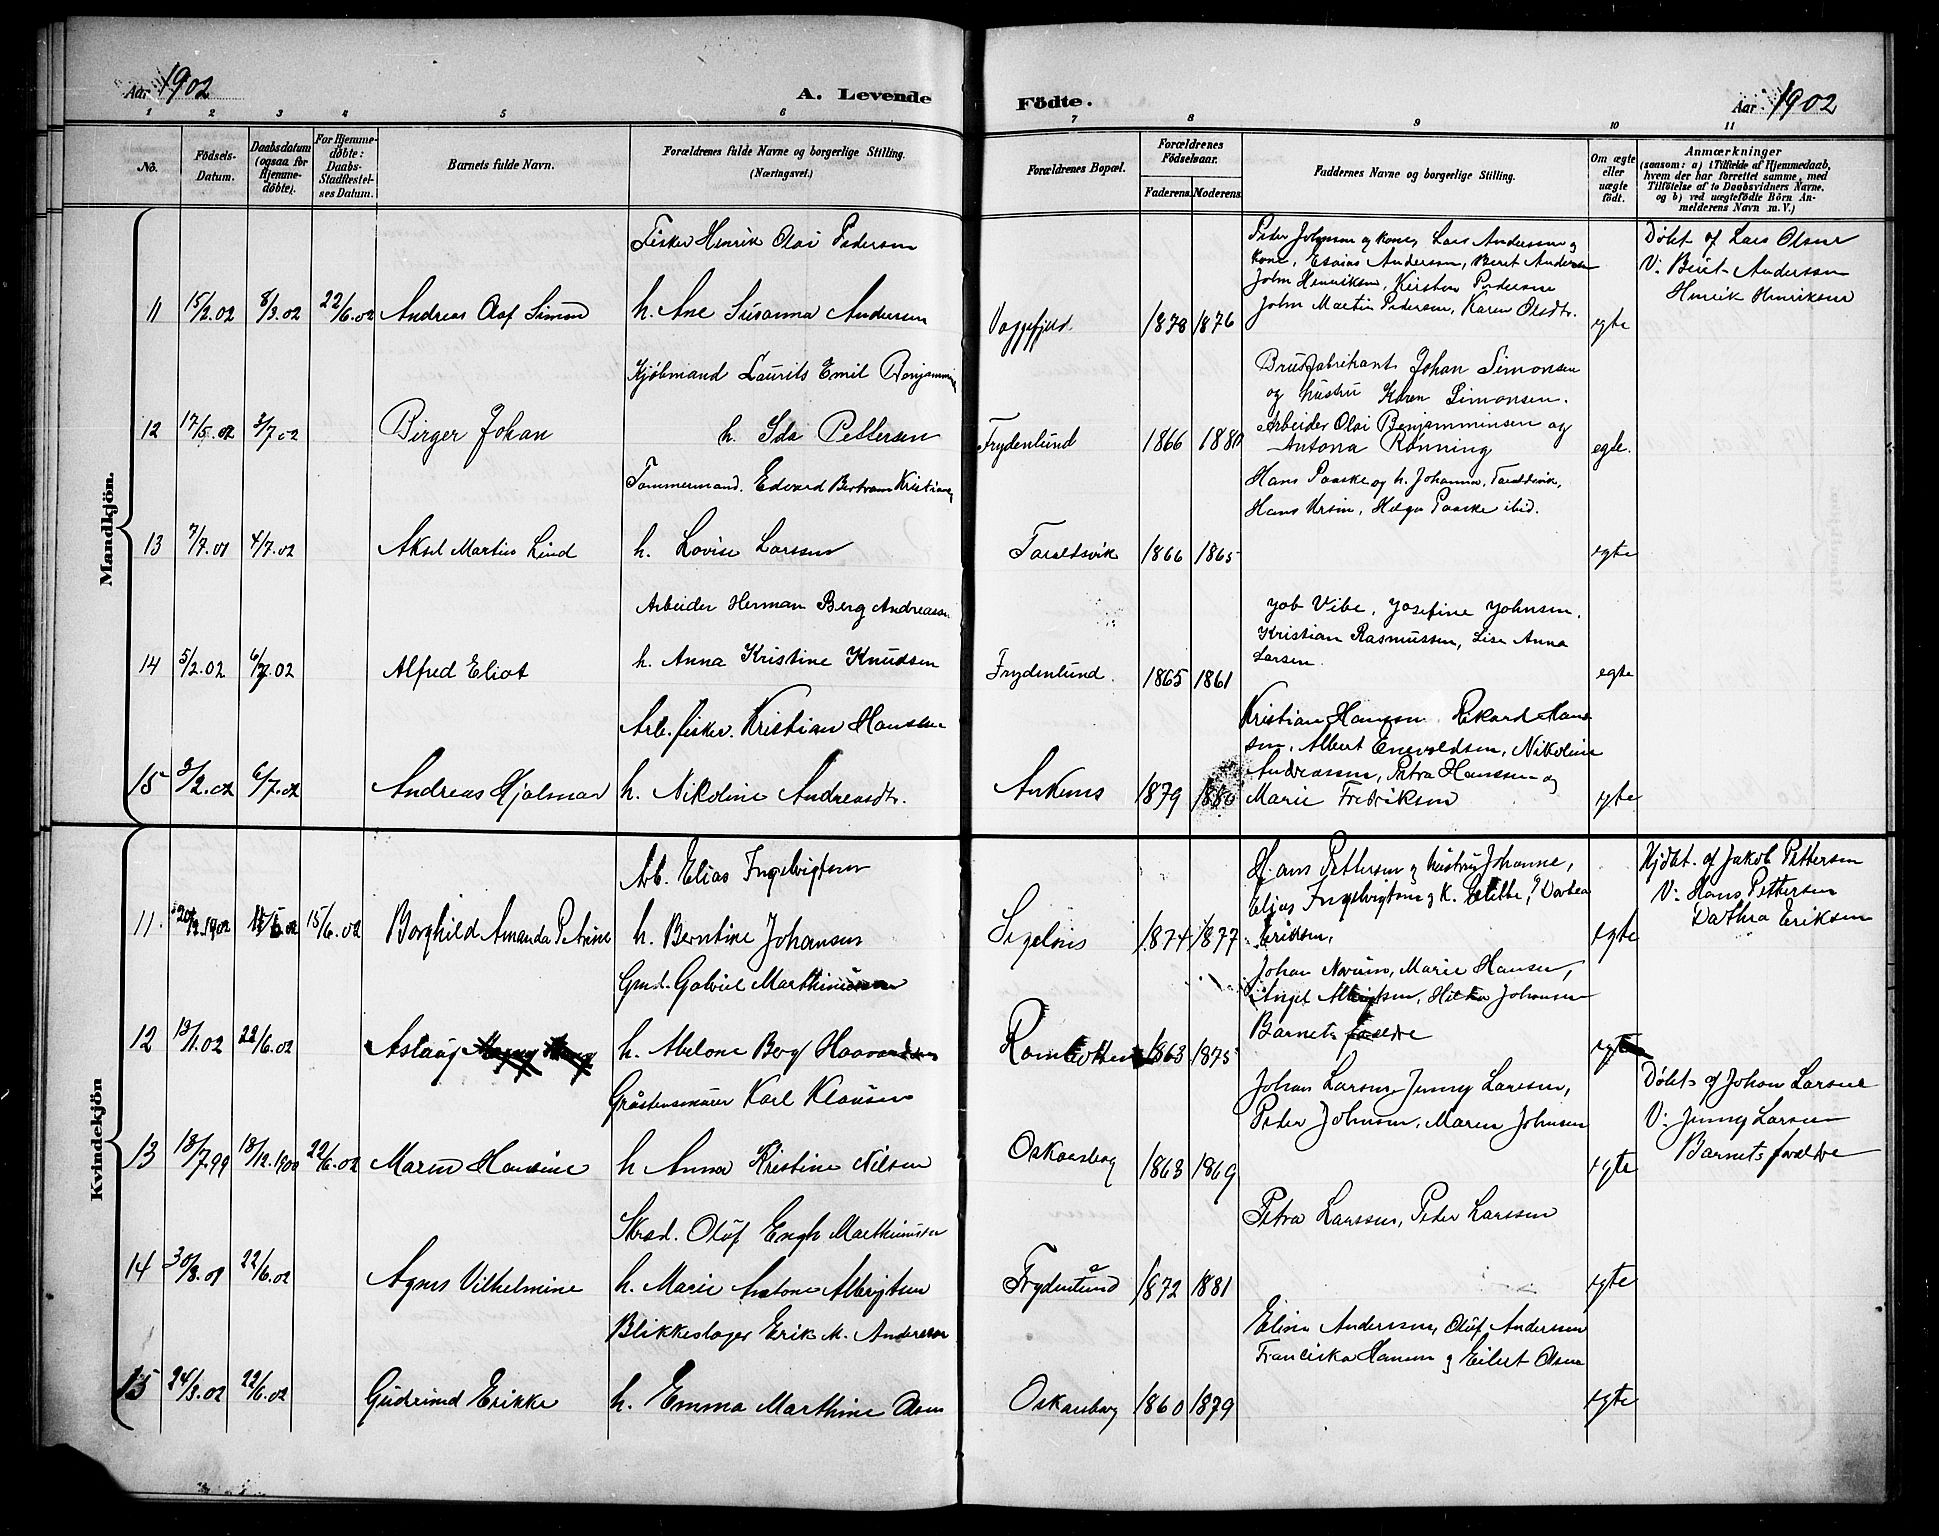 Aar 1902
A. Levende
1 2 3 4 5 6
No.
Födsels-Datum.
Daabsdatum (ogsaa for Hjemme-döbte).
For Hjemme-döbte: Daabs-Stadfæstel-ses Datum.
Barnets fulde Navn.
Forældrenes fulde Navne og borgerlige Stilling.
(Næringsvei.)
Mandkjön.
Fisker Henrik Olai Pedersen
11 15/2.02 8/3.02 22/6.02 Andreas Olaf Simon h. Ane Susanna Andersen
Kjøbmand Laurits Emil Benjaminsen
12 17/5.02 3/7.02 Birger Johan h. Ida Pettersen
Tømmermand. Edvard Bertram Kristiansen
13 7/7.01 4/7.02 Aksel Martin Lind h. Lovise Larssen
Arbeider Herman Berg Andreassen
14 5/2.02 6/7.02 Alfred Eliot h. Anna Kristine Knudsen
Arb. fisker. Kristian Hanssen
15 3/2.02 6/7.02 Andreas Hjalmar h. Nikoline Andreasdtr.
Kvindekjön
Arb. Elias Ingebrigtsen
11. 20/2.1902 15/6.02 Borghild Amanda Petrine h. Berntine Johansen
Gmd. Gabriel Marthinussen
12 13/1.02 22/6.02 Aslaug h. Abelone Berg Haavardsen
Gråstensmurer Karl Klausen
13 18/7.99 18/12.1900 22/6.02 Maren Hansine h Anna Kristine Nilsen
Skrad. Oluf Engh Marthinussen
14 30/8.01 22/6.02 Agnes Vilhelmine h. Marie Antone Albrigtsen
Blikkeslager Erik M. Andersen
15 24/3.02 22/6.02 Gudrund Erikke h. Emma Marthine Olsen
Födte.
Aar 1902
7 8 9 10 11
Forældrenes Bopæl.
Forældrenes Födselsaar.
Faderens. Moderens.
Faddernes Navne og borgerlige Stilling.
Om ægte eller uægte födt.
Anmærkninger
(saasom: a) i Tilfælde af Hjemmedaab,
hvem der har forrettet samme, med
Tilföielse af to Daabsvidners Navne.
og b) ved uægtefödte Börn An-
melderens Navn m. V.)
Peder Johnsen og kone, Lars Anderssen og
kone, Esaias Anderssen, Beret Andersen
John Henriksen, Kirsten Pedersen
John Martin Pedersen, Karen Olsdtr.
Døbt af Lars Olsen
V: Beret Anderssen
Henrik Henriksen
1878 1876 egte
Brusfabrikant Johan Simonsen
og hustru Karen Simonsen.
Arbeider Olai Benjamminsen og
Antona Rønning
Frydenlund 1866 1880 egte.
Hans Paaske og h. Johanna, Taraldsvik,
Hans Ursin, Helga Paaske ibid.
Taraldsvik 1866 1865 egte
Job Vibe, Josefine Johnsen.
Kristian Rasmussen, Lise Anna
Larsen.
Frydenlund. 1865 1861 egte
Kristian Hansen, Rikard Hans
sen, Albert Enevoldsen, Nikoline
Andreassen, Petra Hanssen og
Marie Fredriksen
Ankenes 1879 1880 egte
Hans Pettersen og hustru Johanne,
Elias Ingebrigtsen og K. Elitbe, og Dorthea
Eriksen,
Hjdbt. af Jakob Pettersen
V: Hans Pettersen
Dorthea Eriksen
1874 1877 egte
Johan Norum, Marie Hansen,
Angel Albrigtsen, Hilda Johansen
Barnets forældre
Rombotten 1863 1875 egte
Johan Larsen, Jenny Larssen,
Peder Johnsen, Maren Johnsen
Døbt af Johan Larsen
V: Jenny Larsen
Barnets forældre
Oskarsborg 1863 1869 egte
Petra Larssen, Peder Larssen
Frydenlund 1872 1881 egte
Elina Anderssen, Oluf Anderssen
Franciska Hansen og Eilert Olsen
Oskarsborg 1860 1879 egte